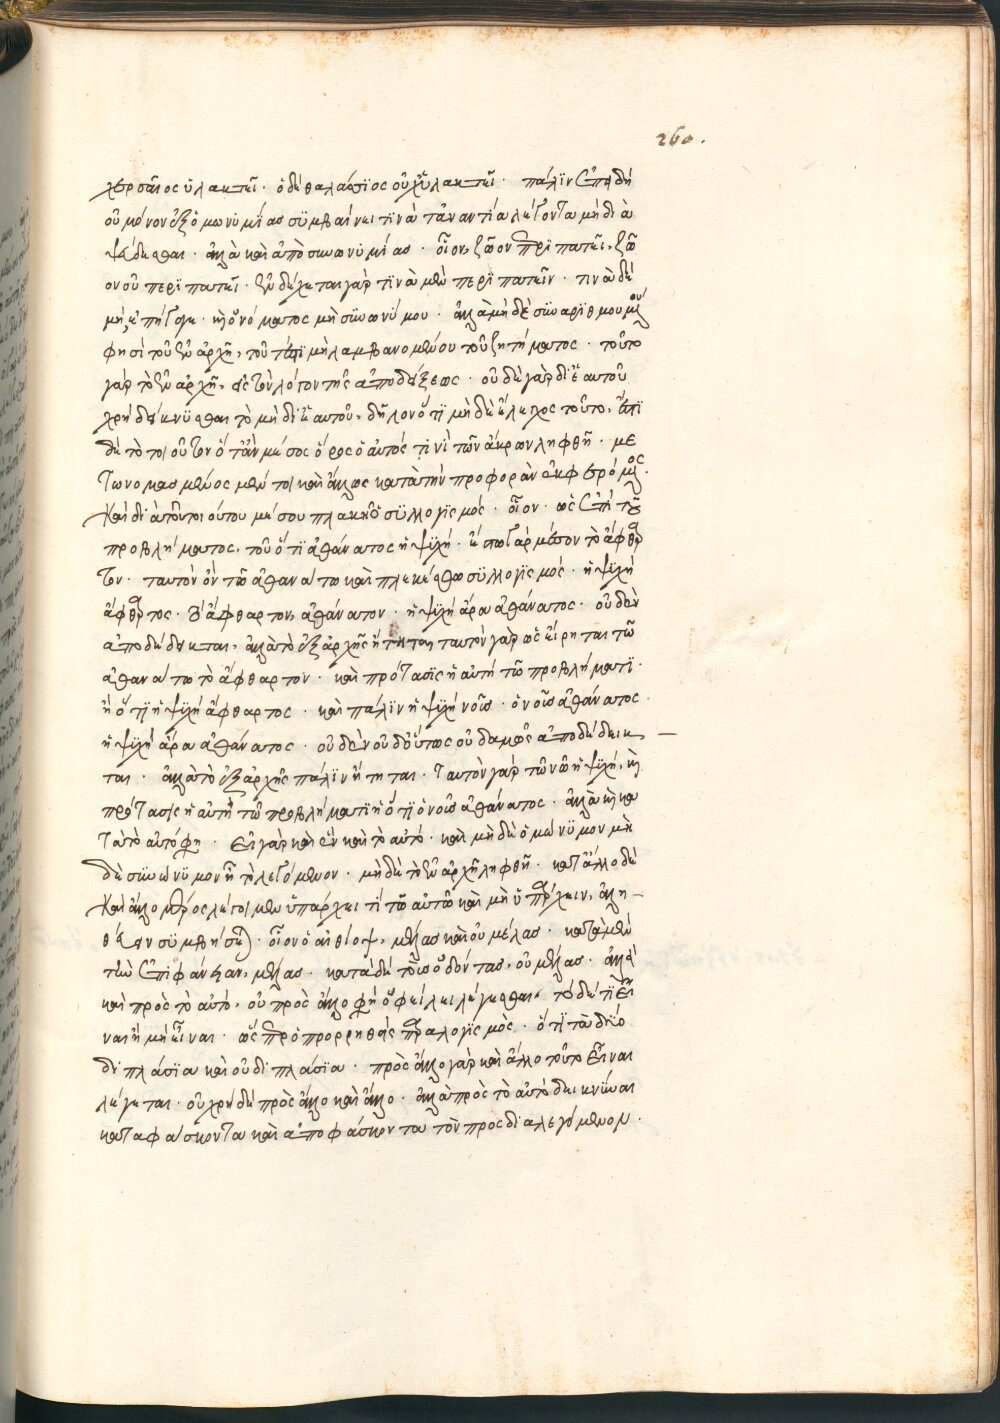 260.
χερσαῖος ὑλακτεῖ · ὁ δὲ θαλάσσιος οὐχ ὑλακτεῖ · πάλιν ἐπειδὴ
οὐ μόνον ἐξ ὁμωνυμίας συμβαίνει τινὰ τἀναντία λέγοντα μὴ δια
ψεύδεσθαι · ἀλλὰ καὶ ἀπὸ συνωνυμίας · οἷον, ζῶον περιπατεῖ, ζῶ
ον οὐ περιπατεῖ · ἐνδέχεται γὰρ τινὰ μὲν περιπατεῖν · τινὰ δὲ
μή, ὀνόματος μὴ συνωνύμου · ἀλλὰ μηδὲ συναριθμουμένου
φησὶ τοῦ ἐν ἀρχῇ, τουτέστι μὴ λαμβανομένου τοῦ ζητήματος · τοῦτο
γὰρ τὸ ἐν ἀρχῇ, εἰς τὸν λόγον τῆς ἀποδείξεως · οὐδὲ γὰρ δι' ἑαυτοῦ
χρὴ δείκνυσθαι τὸ μὴ δι' ἑαυτοῦ, δῆλον ὅτι μηδὲ ἔλεγχος τοῦτο, ἔστι
δὲ τὸ τοιοῦτον ὅταν μέσος ὅρος ὁ αὐτός τινι τῶν ἄκρων ληφθῇ · με
τωνομασμένος μέντοι καὶ ἄλλως κατὰ τὴν προφορὰν ἐκφερόμενος.
Καὶ διὰ τοῦ τοιούτου μέσου πλακῇ ὁ συλλογισμός · οἷον · ὡς ἐπὶ τοῦ
προβλήματος, τοῦ ὅτι ἀθάνατος ἡ ψυχή · μέσον τὸ ἄφθαρ
τον · ταυτὸν ὂν τῶ ἀθανάτω καὶ πλεκέσθω συλλογισμός · ἡ ψυχὴ
ἄφθαρτος · τὸ ἄφθαρτον, ἀθάνατον · ἡ ψυχὴ ἄρα ἀθάνατος · οὐδὲν
ἀποδέδεικται, ἀλλὰ τὸ ἐξ ἀρχῆς ᾔτηται ταυτὸν γὰρ ὡς εἴρηται τῶ
ἀθανάτω τὸ ἄφθαρτον · καὶ πρότασις ἡ αὐτὴ τῶ προβλήματι ·
ἢ ὅτι ἡ ψυχὴ ἄφθαρτος · καὶ πάλιν ἡ ψυχὴ νοῦς · ὁ νοῦς ἀθάνατος ·
ἡ ψυχὴ ἄρα ἀθάνατος · οὐδὲν οὐδ' οὕτως οὐδαμῶς ἀποδέδεικ —
ται · ἀλλὰ τὸ ἐξ ἀρχῆς πάλιν ᾔτηται · ταυτὸν γὰρ τῶ νῶ ἡ ψυχή, καὶ
πρότασις ἡ αὐτὴ τῶ προβλήματι ἡ ὅτι ὁ νοῦς ἀθάνατος · ἀλλὰ καὶ κα
τὰ τὸ αὐτό φη · Εἰ γὰρ καὶ ἓν καὶ τὸ αὐτὸ · καὶ μηδὲ ὁμώνυμον μη
δὲ συνώνυμον ᾖ τὸ λεγόμενον · μηδὲ τὸ ἐν ἀρχῇ ληφθῇ · κατ' ἄλλο δὲ
Καὶ ἄλλο πρὸς λέγοι μὲν ὑπάρχει τί τῶ αὐτῶ καὶ μὴ ὑπάρχειν, ἀλη —
θεύειν συμβήσεται · οἷον ὁ αἰθίοψ, μέλας καὶ οὐ μέλας · κατὰ μὲν
τὴν ἐπιφάνειαν, μέλας · κατὰ δὲ τοὺς ὀδόντας, οὐ μέλας · ἀλλὰ
καὶ πρὸς τὸ αὐτό, οὐ πρὸς ἄλλο φη ὀφείλει λέγεσθαι, τόδε τι εἶ
ναι ἢ μὴ εἶναι · ὡς προπορρηθεὶς παραλογισμὸς · ὅτι τὰ δύο
διπλάσια καὶ οὐ διπλάσια · πρὸς ἄλλο γὰρ καὶ ἄλλο τοῦτο εἶναι
λέγεται · οὐ χρὴ δὲ πρὸς ἄλλο καὶ ἄλλο · ἀλλὰ πρὸς τὸ αὐτὸ δεικνύναι
καταφάσκοντα καὶ ἀποφάσκοντα τὸν προσδιαλεγόμενον ·